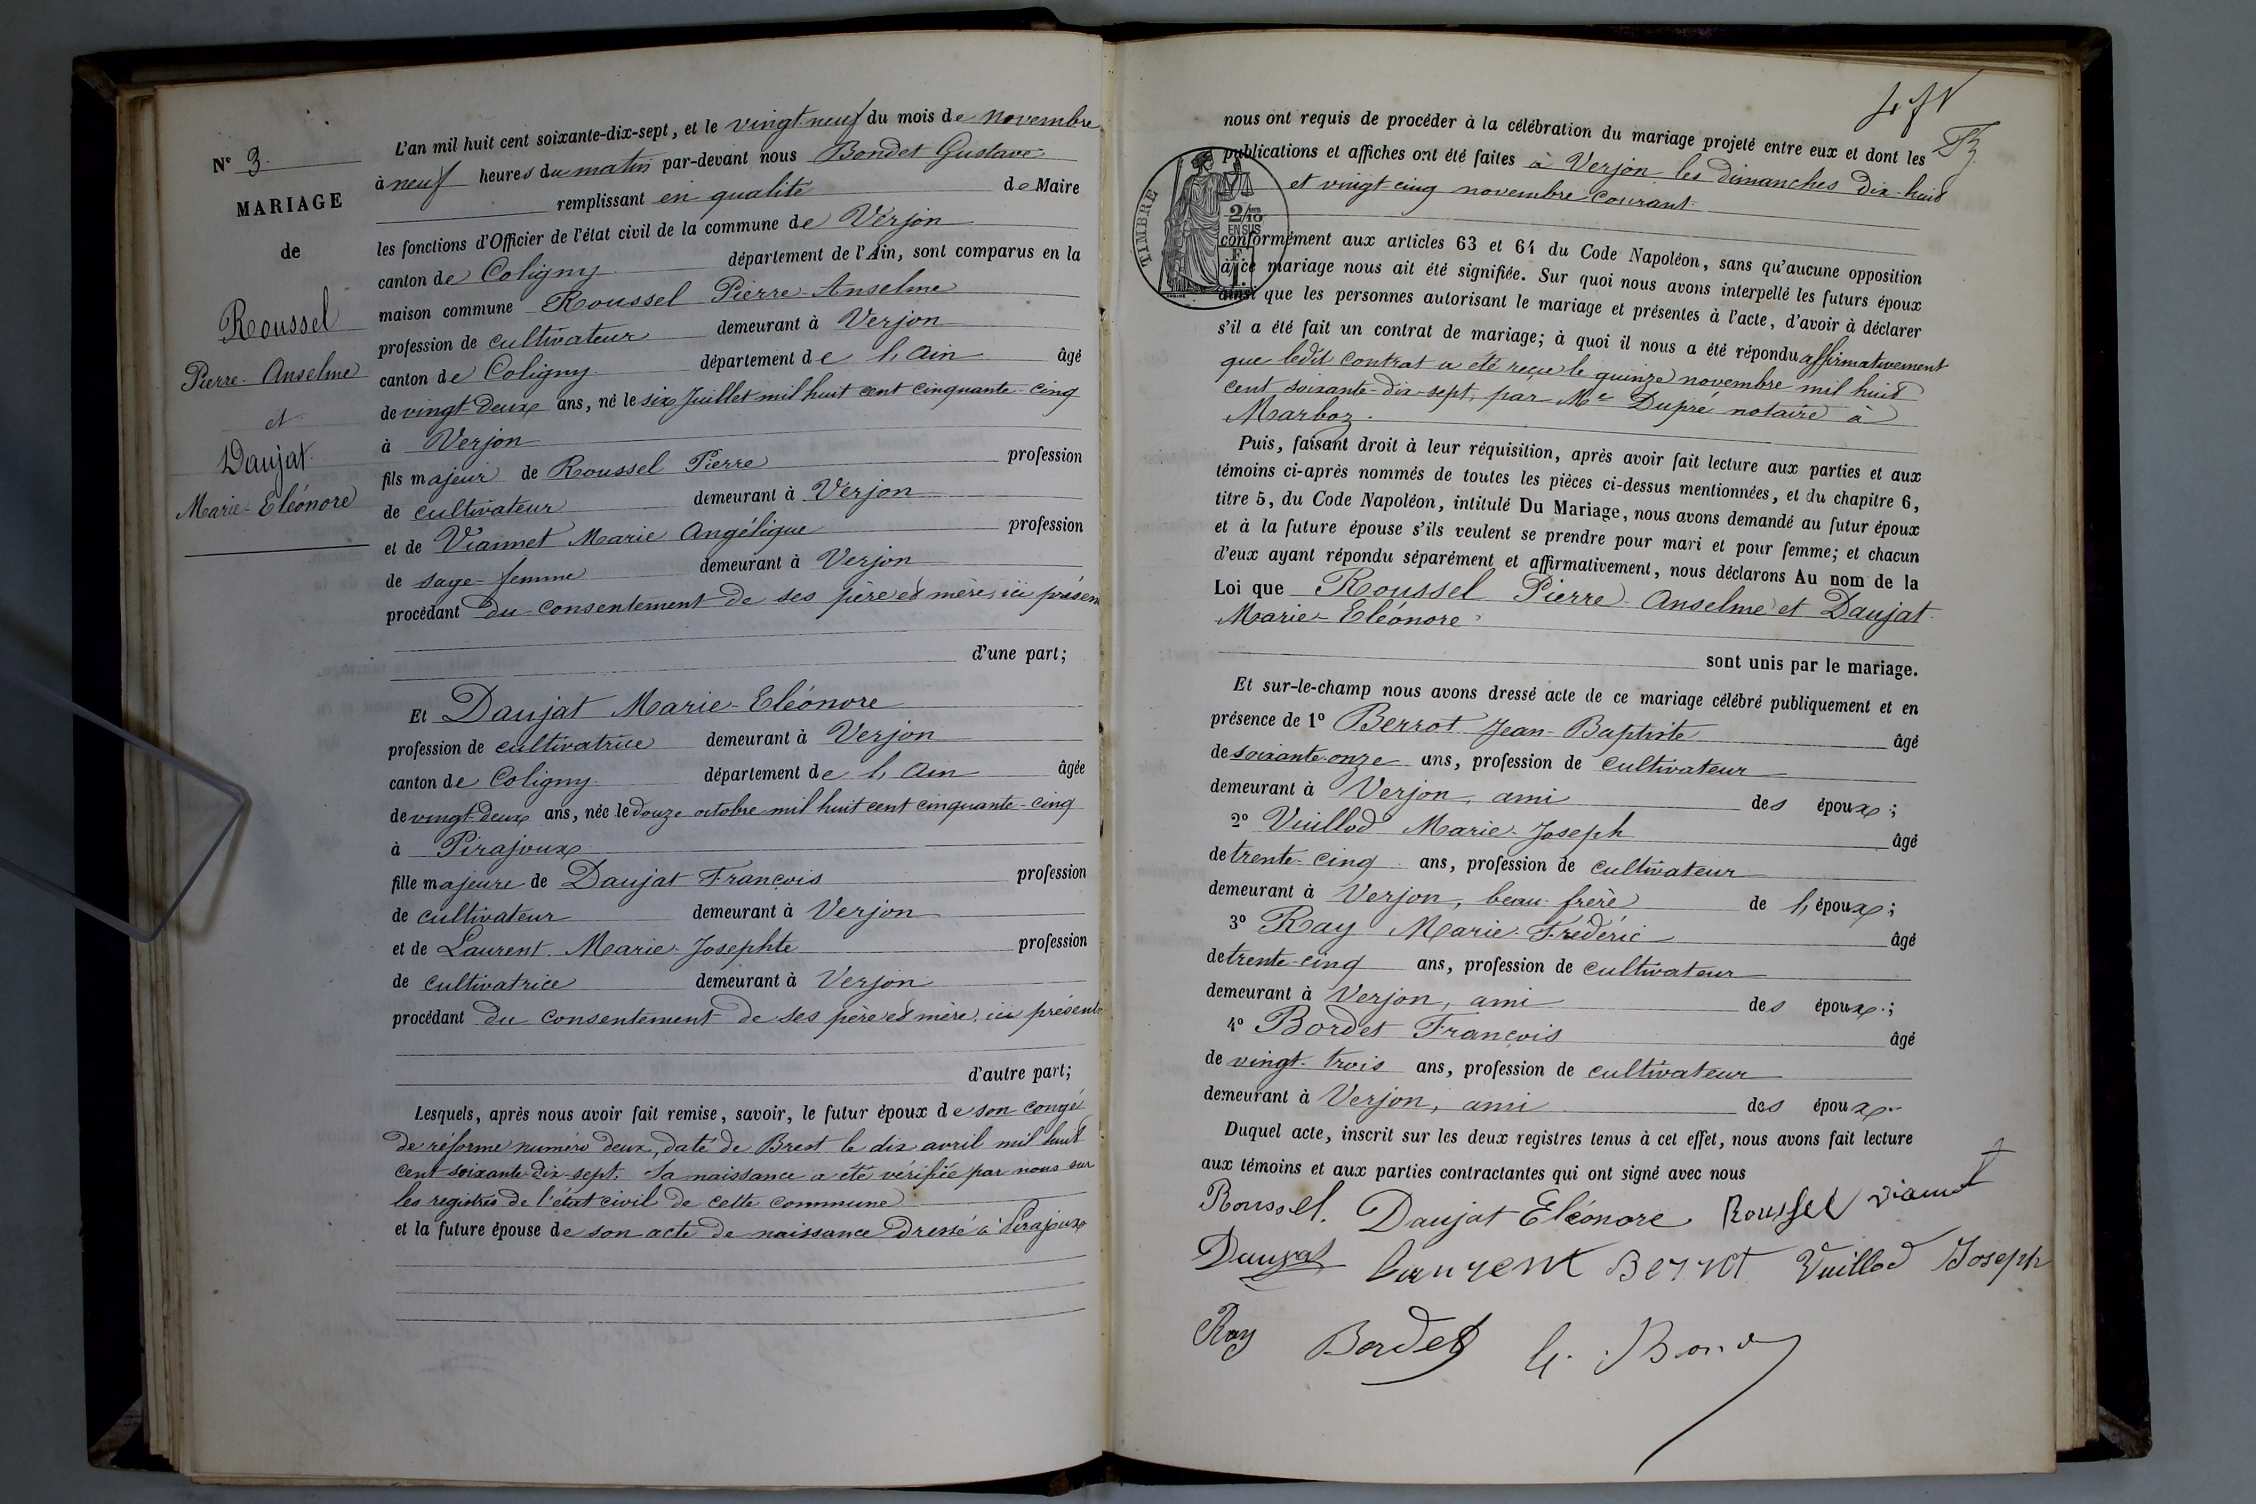 N° 3.
MARIAGE
de
Roussel
Pierre-Anselme
et
Daujat
Marie-Eléonore
L'an mil huit cent soixante-dix-sept, et le vingt-neuf du mois de novembre
à neuf heures du matin par-devant nous Bondet Gustave
remplissant en qualité de Maire
les fonctions d'Officier de l'état civil de la commune de Verjon
canton de Coligny département de l'Ain, sont comparus en la
maison commune Roussel Pierre-Anselme
profession de cultivateur demeurant à Verjon
canton de Coligny département de l'Ain âgé
de vingt-deux ans, né le six Juillet mil huit cent cinquante-cinq
à Verjon
fils majeur de Roussel Pierre profession
de cultivateur demeurant à Verjon
et de Viannet Marie Angélique profession
de sage-femme demeurant à Verjon
procédant du consentement de ses père et mère, ici présen
d'une part;
Et Daujat Marie-Eléonore
profession de cultivatrice demeurant à Verjon
canton de Coligny département de l'Ain âgée
de vingt-deux ans, née le douze octobre mil huit cent cinquante-cinq
à Pirajoux
fille majeure de Daujat François profession
de cultivateur demeurant à Verjon
et de Laurent Marie-Josephte profession
de cultivatrice demeurant à Verjon
procédant du consentement de ses père et mère, ici présents
d'autre part;
Lesquels, après nous avoir fait remise, savoir, le futur époux de son congé
de réforme numéro deux, daté de Brest le dix avril mil huit
cent soixante-dix-sept. Sa naissance a été vérifiée par nous sur
les registres de l'état civil de cette commune
et la future épouse de son acte de naissance dressé à Pirajoux
nous ont requis de procéder à la célébration du mariage projeté entre eux et dont les
publications et affiches ont été faites à Verjon les dimanches dix-huit
et vingt cinq novembre courant
TIMBRE
2/10
EN SUS
conformément aux articles 63 et 64 du Code Napoléon, sans qu'aucune opposition
à ce mariage nous ait été signifiée. Sur quoi nous avons interpellé les futurs époux
ainsi que les personnes autorisant le mariage et présentes à l'acte, d'avoir à déclarer
s'il a été fait un contrat de mariage; à quoi il nous a été répondu affirmativement
que ledit contrat a été reçu le quinze novembre mil huit
cent soixante-dix-sept, par Me Dupré notaire à
Marboz.
Puis, faisant droit à leur réquisition, après avoir fait lecture aux parties et aux
témoins ci-après nommés de toutes les pièces ci-dessus mentionnées, et du chapitre 6,
titre 5, du Code Napoléon, intitulé Du Mariage, nous avons demandé au futur époux
et à la future épouse s'ils veulent se prendre pour mari et pour femme; et chacun
d'eux ayant répondu séparément et affirmativement, nous déclarons Au nom de la
Loi que Roussel Pierre-Anselme et Daujat
Marie-Eléonore
sont unis par le mariage.
Et sur-le-champ nous avons dressé acte de ce mariage célébré publiquement et en
présence de 1° Berrot Jean-Baptiste âgé
de soixante-onze ans, profession de cultivateur
demeurant à Verjon, ami des époux;
2° Vuillod Marie-Joseph âgé
de trente-cinq ans, profession de cultivateur
demeurant à Verjon, beau-frère de l'époux;
3° Ray Marie-Frédéric âgé
de trente-cinq ans, profession de cultivateur
demeurant à Verjon, ami des époux;
4° Bordet François âgé
de vingt-trois ans, profession de cultivateur
demeurant à Verjon, ami des époux.
Duquel acte, inscrit sur les deux registres tenus à cet effet, nous avons fait lecture
aux témoins et aux parties contractantes qui ont signé avec nous
Roussel. Daujat Eléonore Roussel
Daujat Laurent Vuillod Joseph
Ray Bordet G.